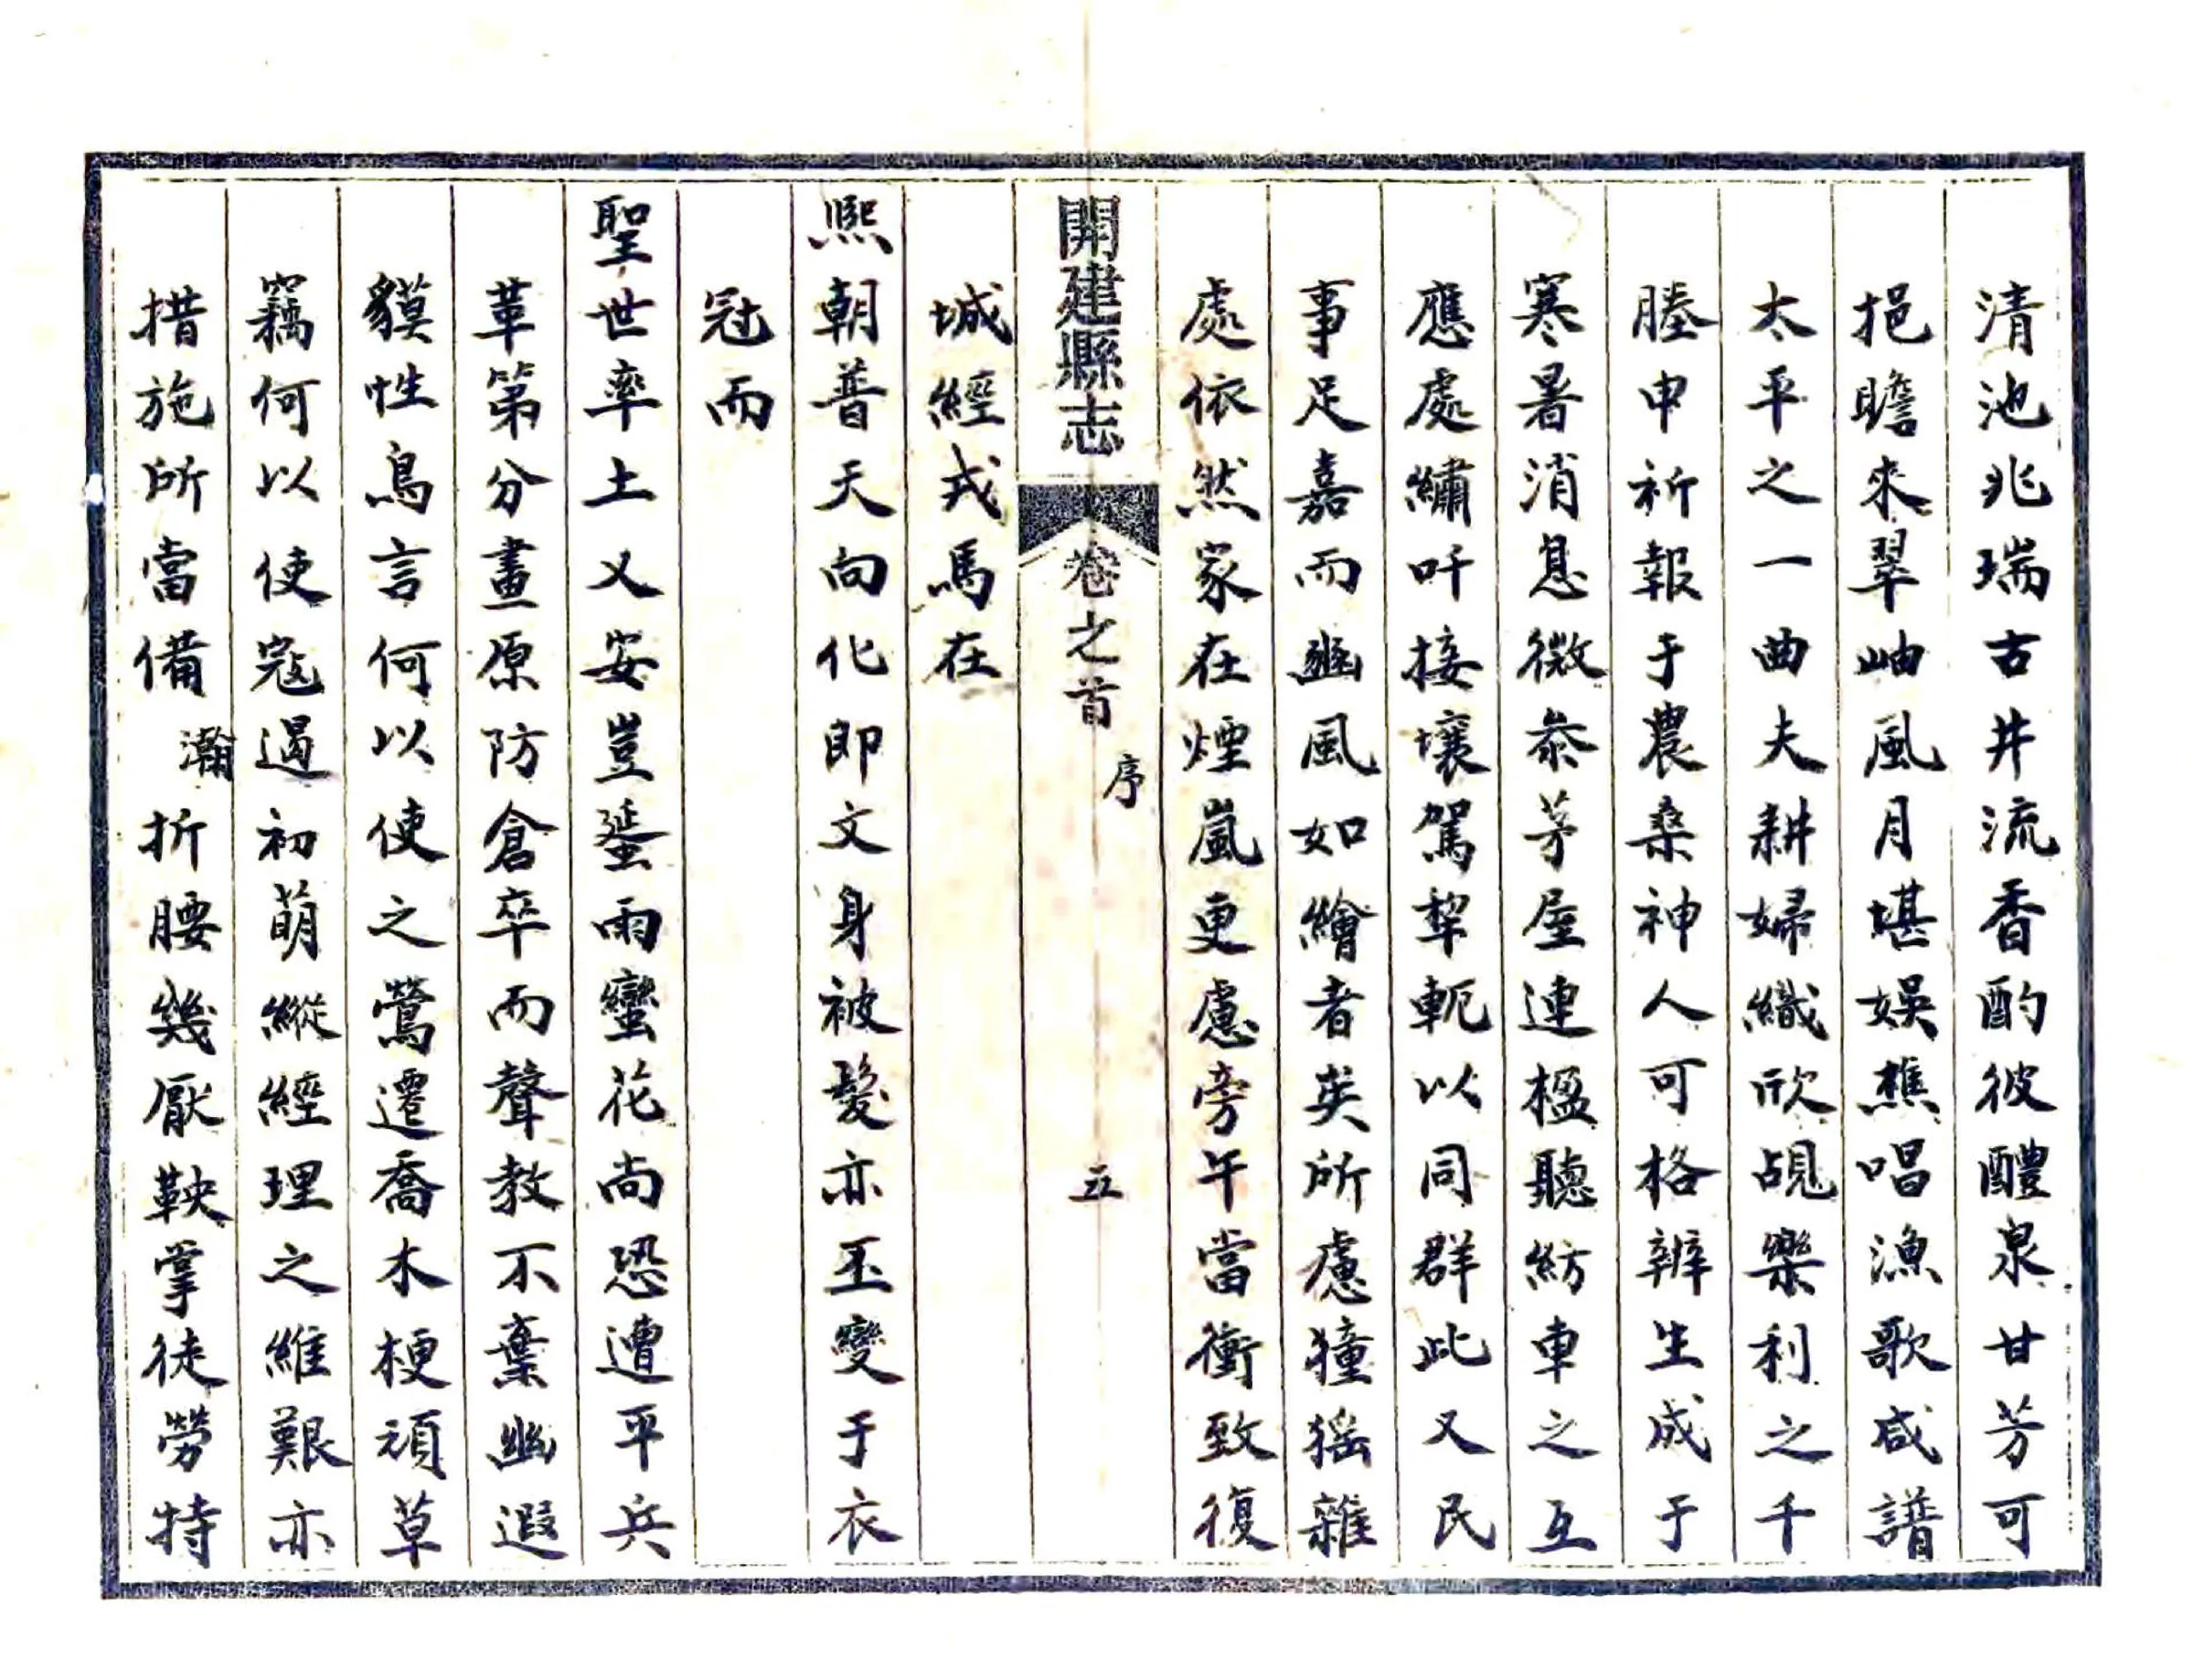 清池兆瑞古井流香酌彼醴泉甘芳可
挹瞻來翠岫風月堪娛樵唱漁歌咸譜
太平之一曲夫耕婦織欣覘樂利之千
塍申祈報于農桑神人可格辨生成于
寒暑消息微叅茅屋連楹聽紡車之互
應處繡吁接壤駕犂軛以同群此又民
事足嘉而豳風如繪者矣所慮獞猺雜
處依然家在煙嵐更慮旁午當衝致復
開建縣志
卷之首
序
五
城經戎馬在
熙朝普天向化即文身被髮亦丕變于衣
冠而
聖世率土乂安豈蜑雨蠻花尚恐遭平兵
革第分畫原防倉卒而聲教不棄幽遐
貘性鳥言何以使之鶯遷喬木梗頑草
竊何以使寇遏初萌縱經理之維艱亦
措施所當備瀚折腰幾厭鞅掌徒勞特